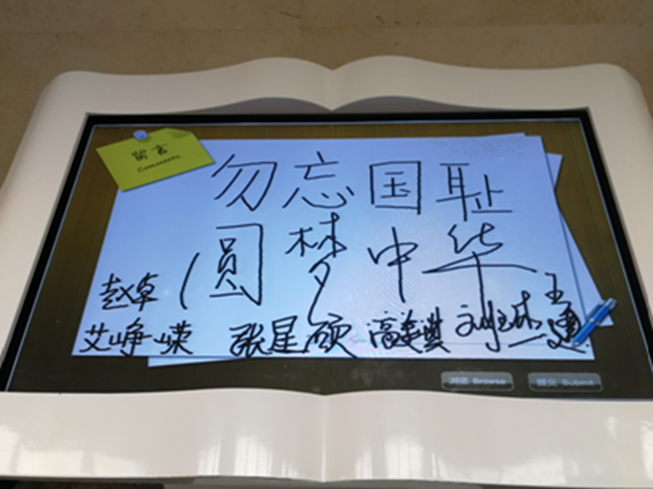 留言
Comments
勿忘国耻
圆梦中华
赵卓
艾峥嵘 张星硕
浏览 Browse 提交 Submit